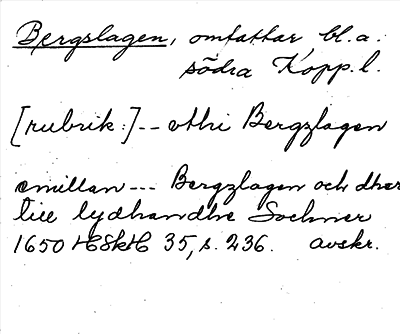 Bergslagen, omfattar bl.a.
södra Kopp.l.
[rubrik:]-- vthi Bergzlagen
emillan --- Bergzlagen och dher
till lydhandhe Sochner
1650 HSkH 35, s. 236. avskr.